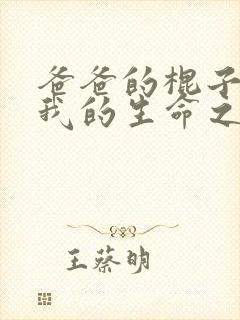 爸爸的棍子
我的生命之
王蔡明